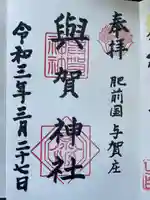 奉拝
肥前国 与賀庄
與賀神社
令和三年三月二十七日